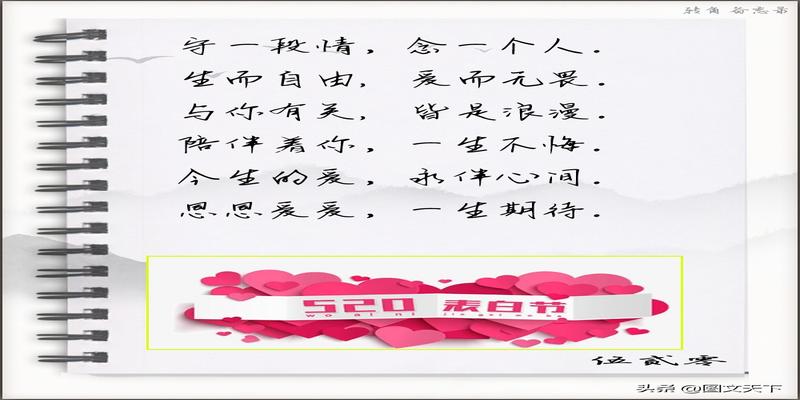 转角 备忘录
守一段情，念一个人．
生而自由，爱而无畏．
与你有关，皆是浪漫．
陪伴着你，一生不悔．
今生的爱，永伴心间．
恩恩爱爱，一生期待．
520 表白节
wo ai ni
伍贰零
头条 @图文天下